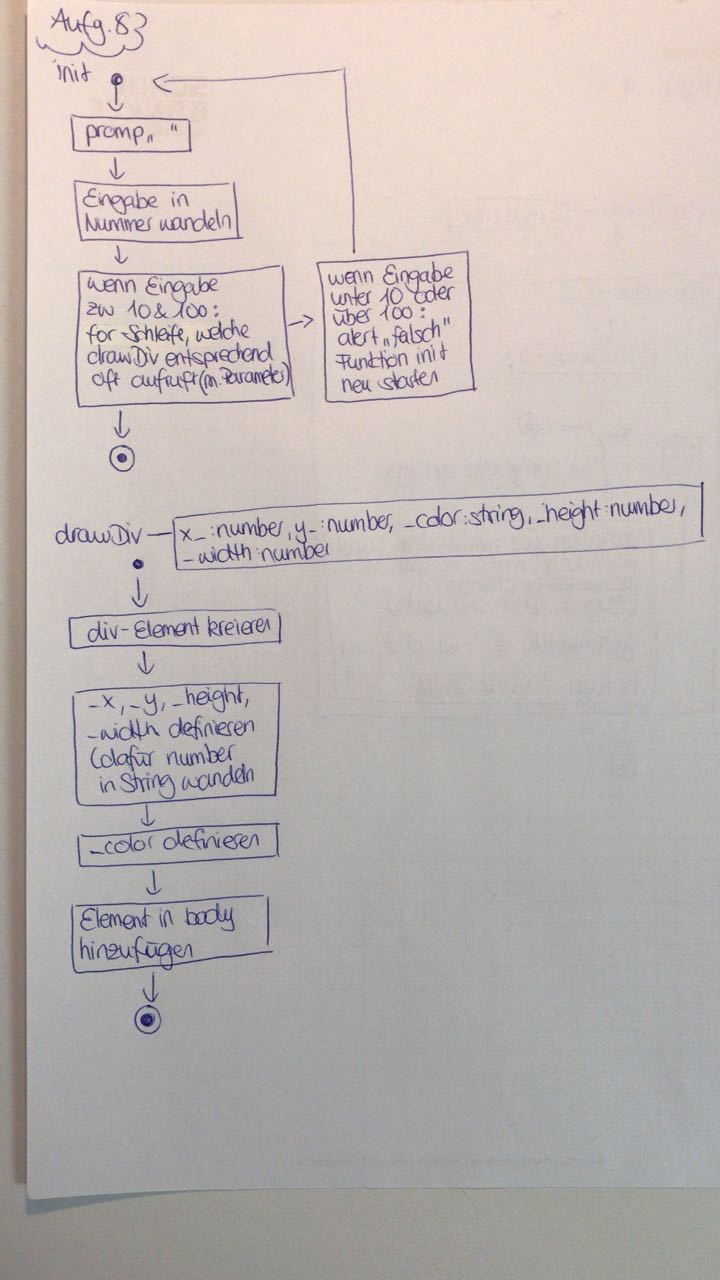 Aufg. 83
init
promp„ “
Eingabe in
Nummer wandeln
wenn Eingabe
zw 10 & 100:
for Schleife, welche
drawDiv entsprechend
oft aufruft (m. Parameter)
wenn Eingabe
unter 10 oder
über 100:
alert „falsch“
Funktion init
neu starten
drawDiv
x_:number, y_:number, _color:string, _height:number,
_width:number
div-Element kreieren
_x, _y, _height,
_width definieren
(dafür number
in String wandeln
_color definieren
Element in body
hinzufügen